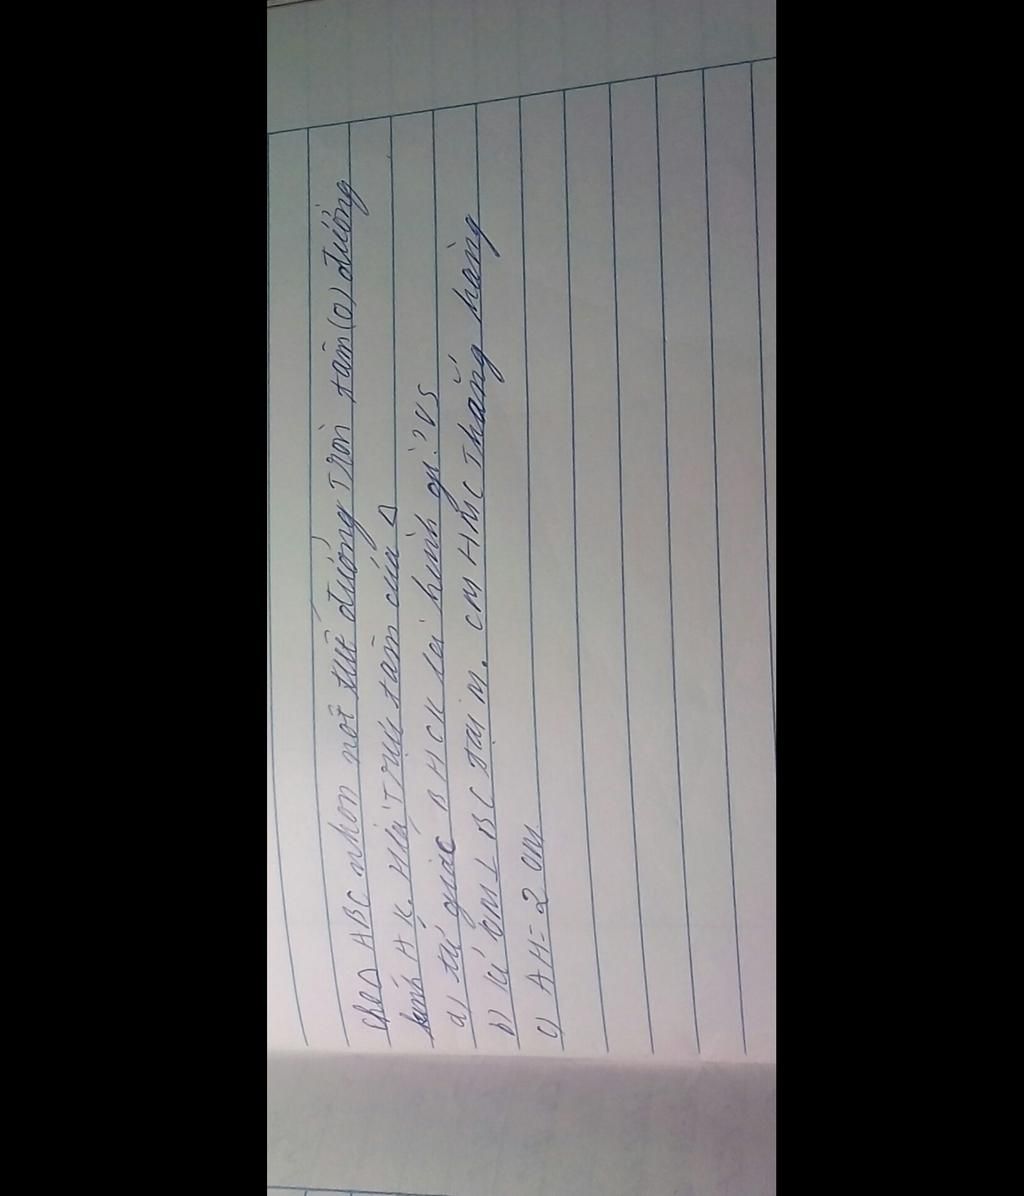 Cho Δ ABC nhọn nội tiếp đường tròn tâm (O) đường
kính AK. H là trực tâm của Δ
a) tứ giác BHCK là hình gì? Vs
b) kẻ OM ⊥ BC tại M. CM HMC thẳng hàng
c) AH = 2 OM